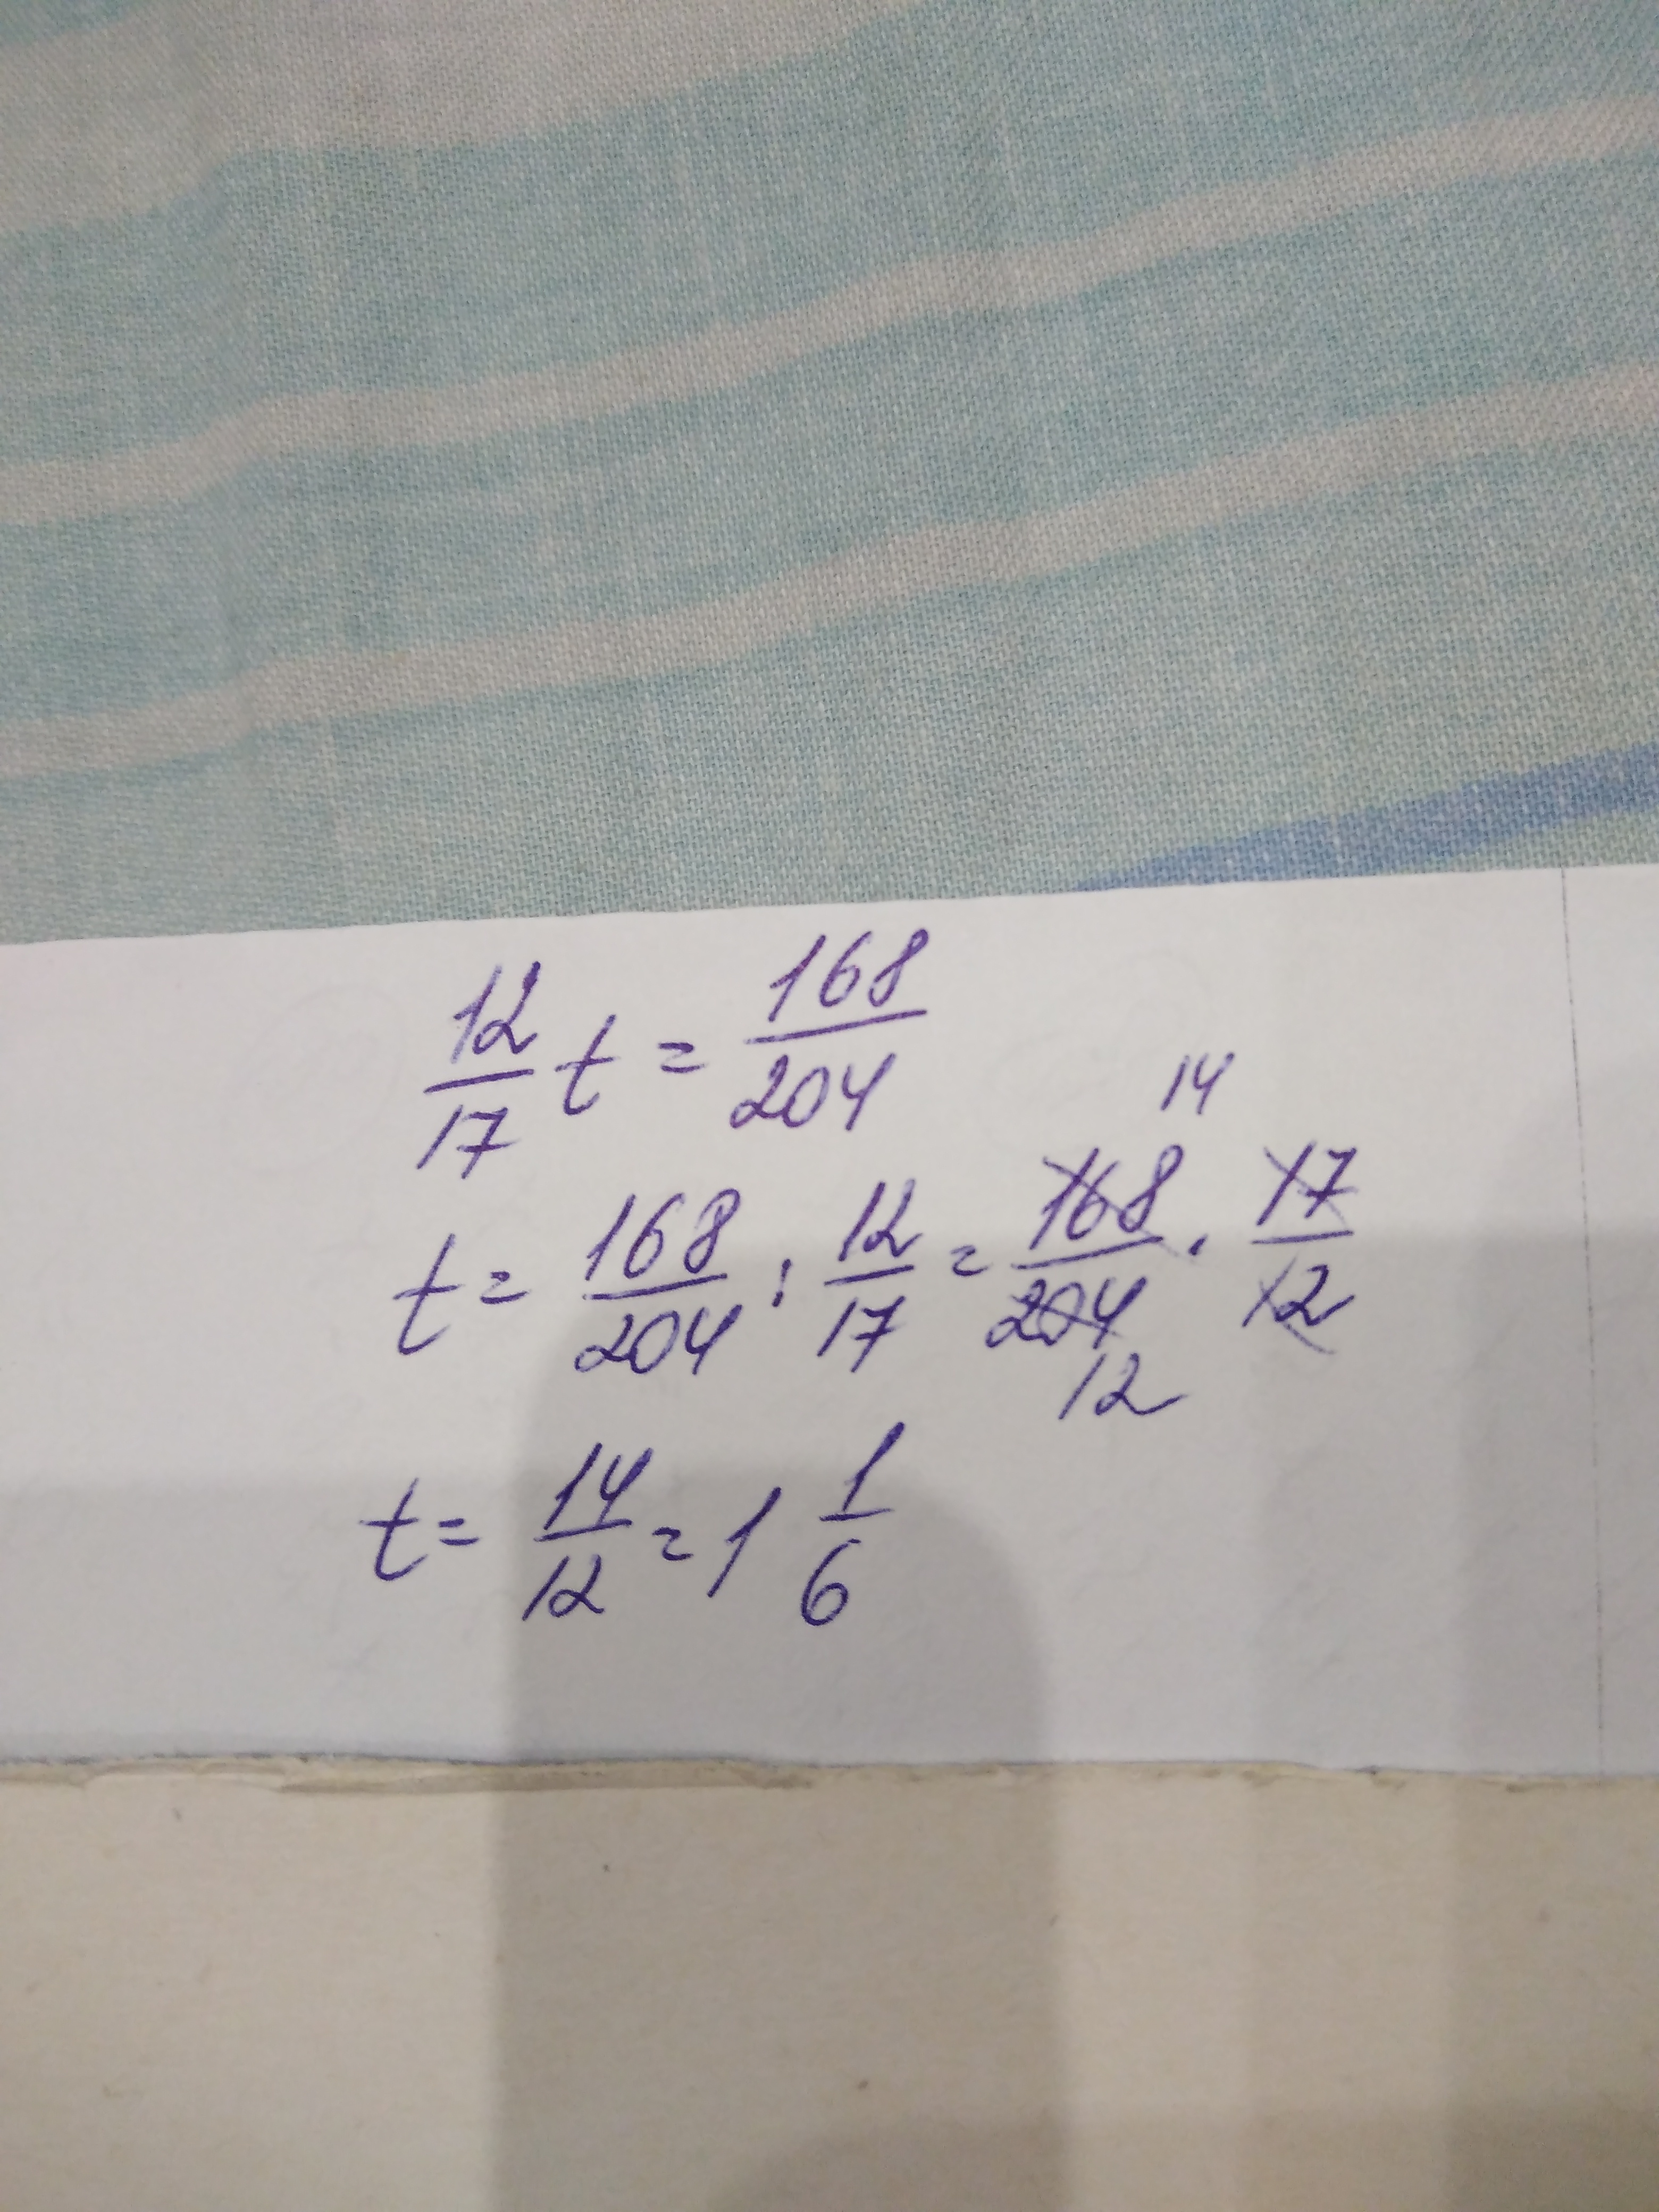 12/17 t = 168/204
t = 168/204 : 12/17 = 168/204 · 17/12
14
12
t = 14/12 = 1 1/6